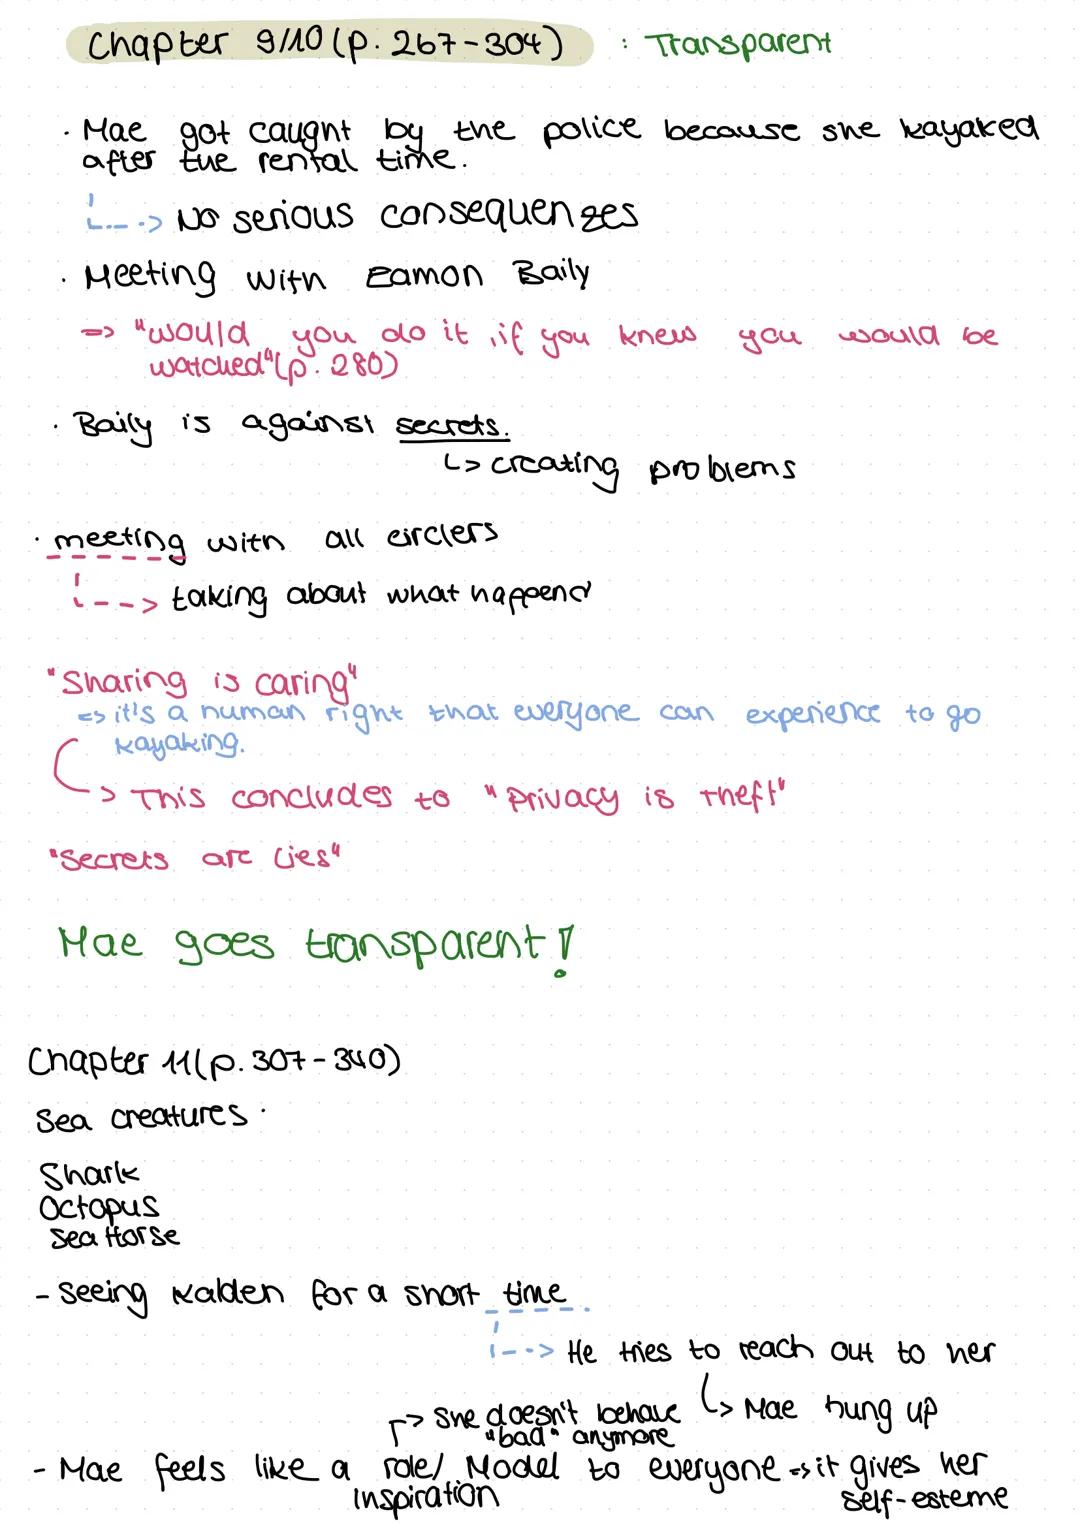 Chapter 9/10 (p. 267-304) : Transparent
· Mae got caught by the police because she kayaked
after the rental time.
-> No serious consequenzes
· Meeting with Eamon Baily
=> "would you do it, if you knew you would be
watched" (p. 280)
· Baily is against secrets.
↳ creating problems
· meeting with all circlers
--> taking about what happend
"Sharing is caring"
=> it's a human right that everyone can experience to go
kayaking.
-> This concludes to "privacy is theft"
"Secrets are lies"
Mae goes transparent!
Chapter 11 (p. 307-340)
Sea creatures:
Shark
Octopus
Sea Horse
- Seeing Kalden for a short time
--> He tries to reach out to her
↳ Mae hung up
-> She doesn't behave
"bad" anymore
- Mae feels like a role/ Model to everyone => it gives her
inspiration self-esteme